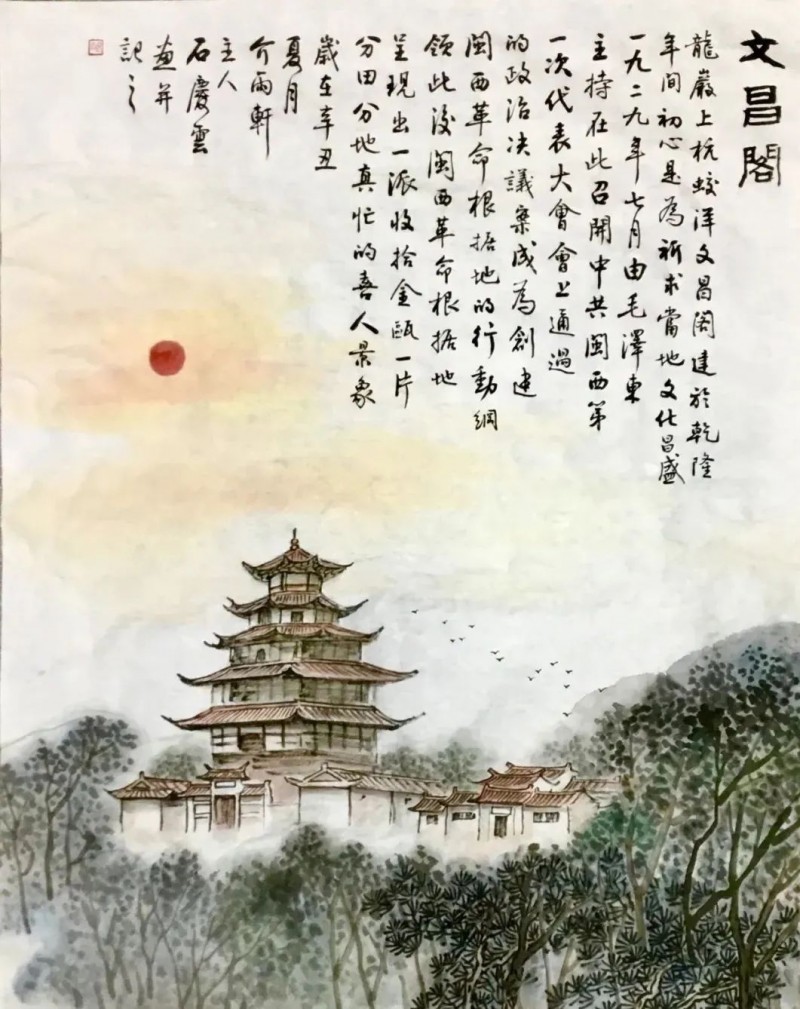 文昌閣
龍巖上杭蛟洋文昌阁建於乾隆
年间初心是為祈求當地文化昌盛
一九二九年七月由毛澤東
主持在此召開中共閩西第
一次代表大會會上通過
的政治决議案成為創建
閩西革命根据地的行動綱
領此後閩西革命根据地
呈現出一派收拾金甌一片
分田分地真忙的喜人景象
歲在辛丑
夏月
介雨軒
主人
石慶雲
畫并
記之